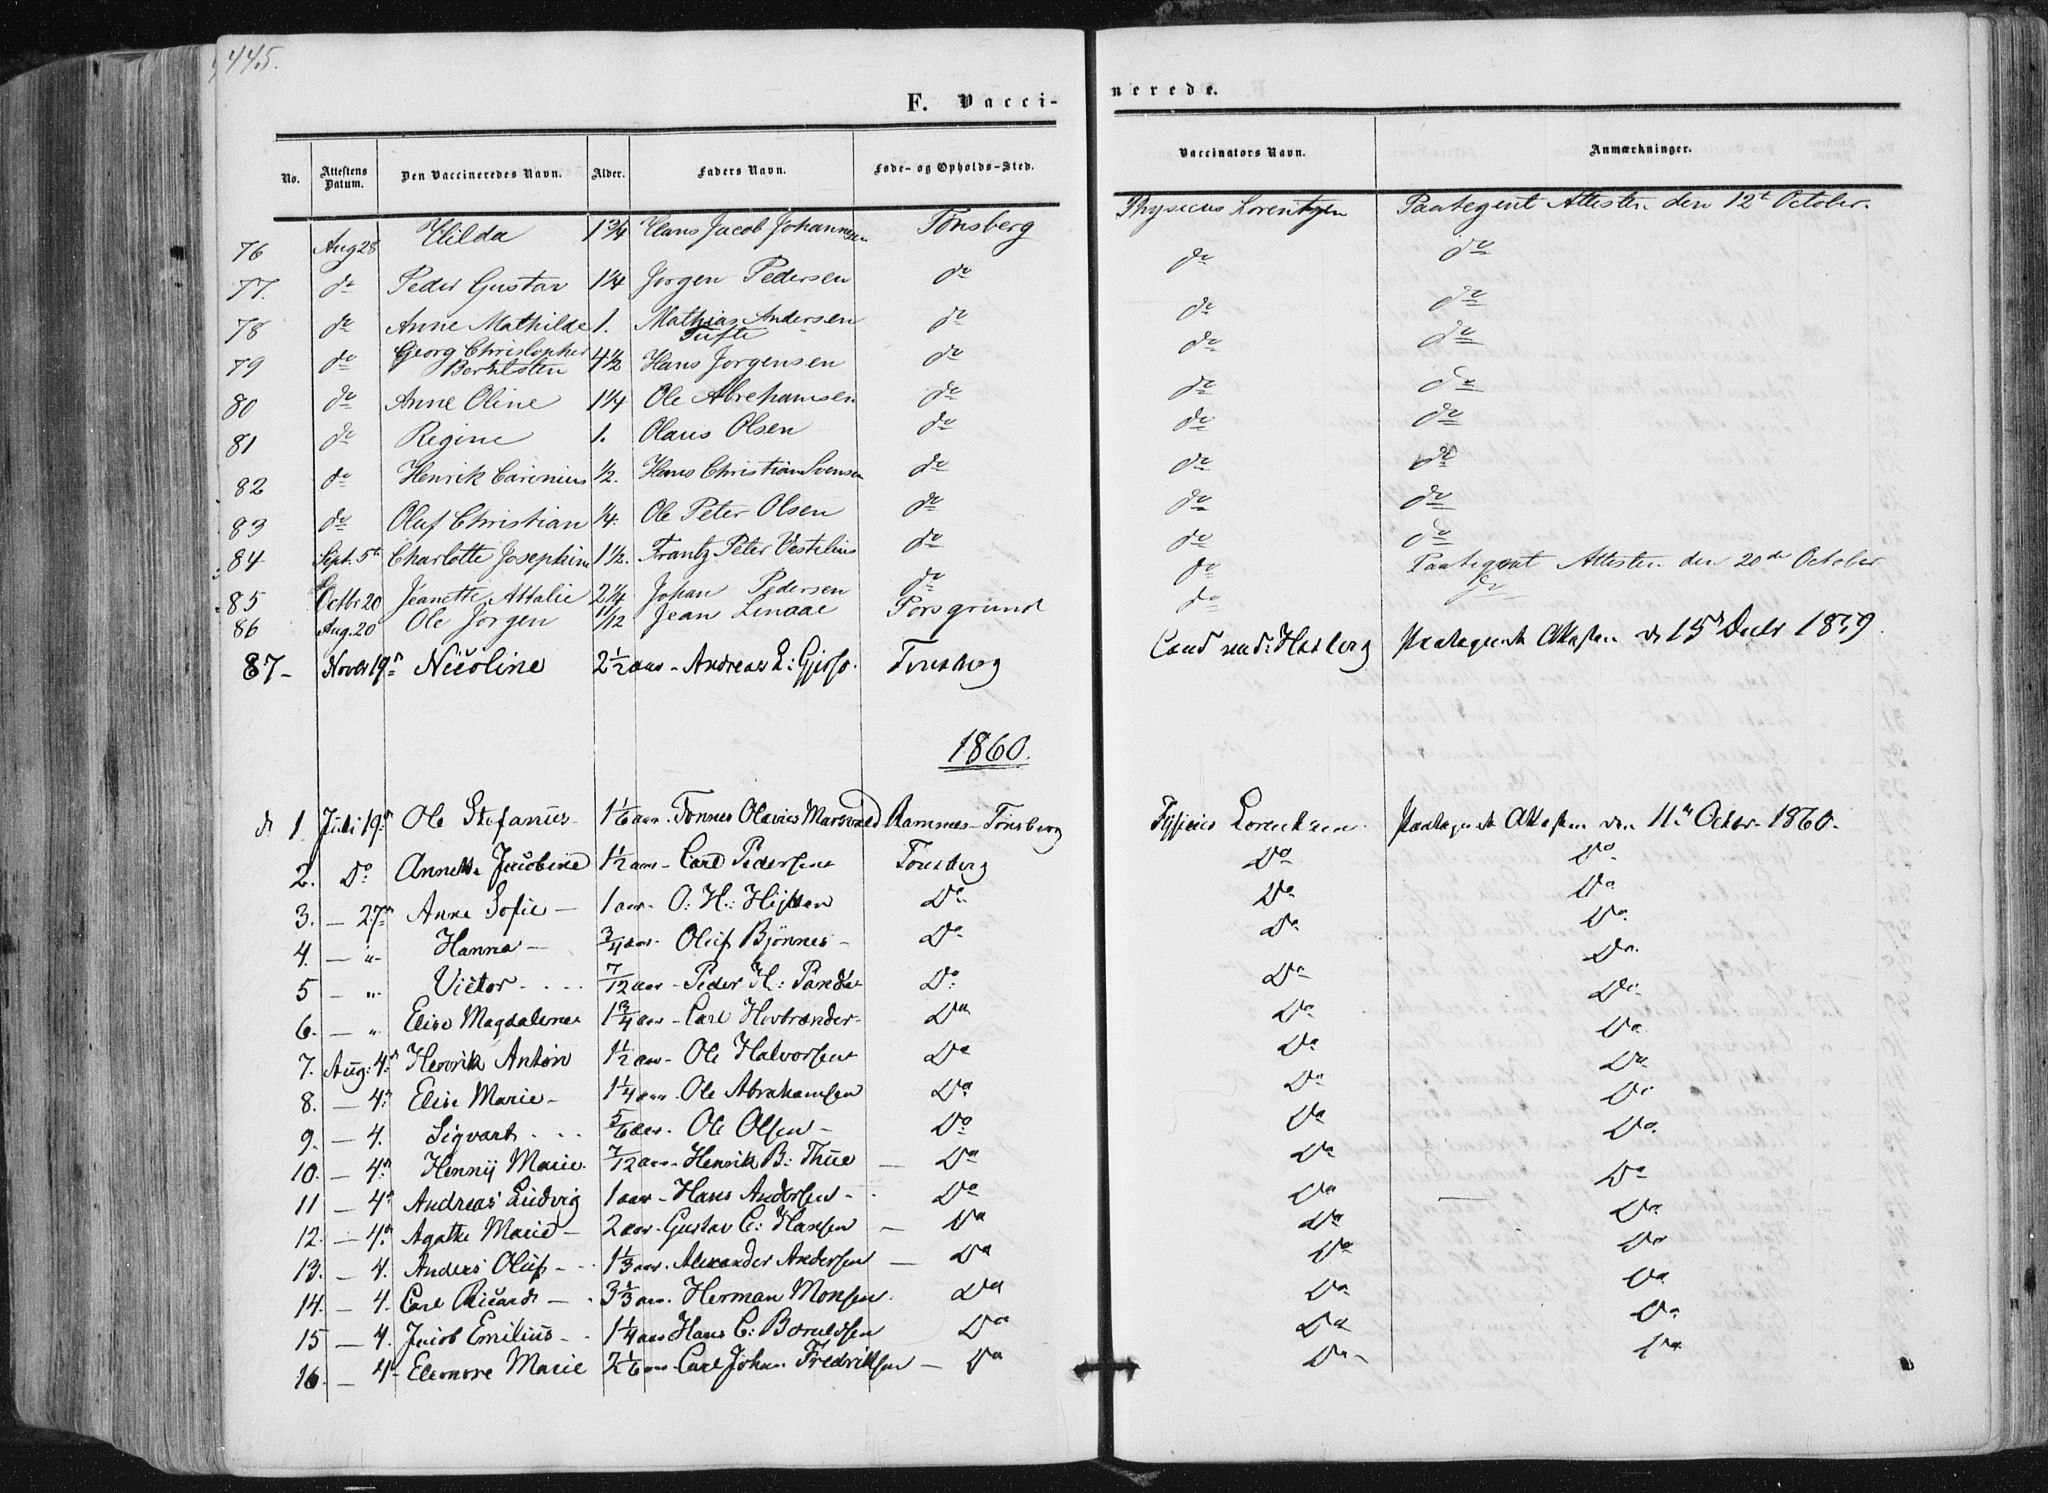 445.
F. Vacci-
nerede.
No. Attestens Datum. Den Vaccineredes Navn. Alder. Faders Navn. Føde- og Opholds-Sted. Vaccinators Navn. Anmærkninger.
76 Aug 28 Hilda 1 3/4 Hans Jacob Johannesen Tønsberg Physicus Lorentzen Paategent Attesten den 12t October.
77. do Peder Gustav 1 1/4 Jørgen Pedersen do do do
78 do Anne Mathilde 1. Mathias Andersen Tufte do do do
79 do Georg Christopher Berntsten 4 1/2 Hans Jørgensen do do do
80 do Anne Oline 1 1/4 Ole Abrehamsen do do do
81 do Regine 1. Olaus Olsen do do do
82 do Henrik Carinius 1/2. Hans Christian Svensen do do do
83 do Oluf Christian 1/4. Ole Peter Olsen do do do
84 Sept. 5t Charlotte Josephine 1 1/2. Frantz Peter Vestelius do do do
85 Octbr 20 Jeanette Attalie 2 1/4 Johan Pedersen do do Paategent Attesten den 20de October
86 Aug. 20 Ole Jørgen 11/12 Jean Linaae Porsgrund do do
87- Novbr 19n Nicoline 2 1/2 aar - Andreas L: Tønsberg Cand med: Paategnet Attesten d 15d Decbr 1859.
1860.
d. 1. Juli 19n Ole Stefanus- 1 1/6 aar. Tønnes Olavius Ramnes- Tønsberg Fysicus Lorentzen. Paategnet Attesten den 11te Octbr. 1860.
2. Do Annette Jacobine 1 1/2 aar- Carl Pedersen Tønsberg Do Do
3. - 27n Anne Sofie - 1 aar. O: H: Do Do Do
4. - " - Hanna - 3/4 aar. Oluf Bjønnes - Do Do Do
5 - " Victor - 7/12 aar - Peder H: Do Do Do
6. - " Elise Magdalene 1 3/4 aar - Carl Hovbrender- Do Do Do
7. Aug: 4n Henrik Anton 1 1/2 aar - Ole Halvorsen Do Do Do
8. - 4n Elise Marie - 1 1/4 aar. Ole Abrahamsen Do Do Do
9. - 4. Sigvart 5/6 aar. Ole Olsen - Do Do Do
10. - 4n Henny Marie. 7/12 aar - Henrik B: Thue - Do Do Do
11 - 4n Andreas Ludvig 1 aar - Hans Andersen - Do Do Do
12. - 4n Agathe Marie - 2 aar - Gustav C: Hansen - Do Do Do
13. - 4. Anders Oluf - 1 1/3 aar. Alexander Andersen - Do Do Do
14. - 4. Carl Ricard - 3 1/3 aar. Herman Monsen. Do Do Do
15 - 4. Jacob Emilius - 1 1/4 aar Hans C: Do Do Do
16. - 4- Eleonore Marie 2 1/6 aar - Carl Johan Fredriksen - Do Do - Do